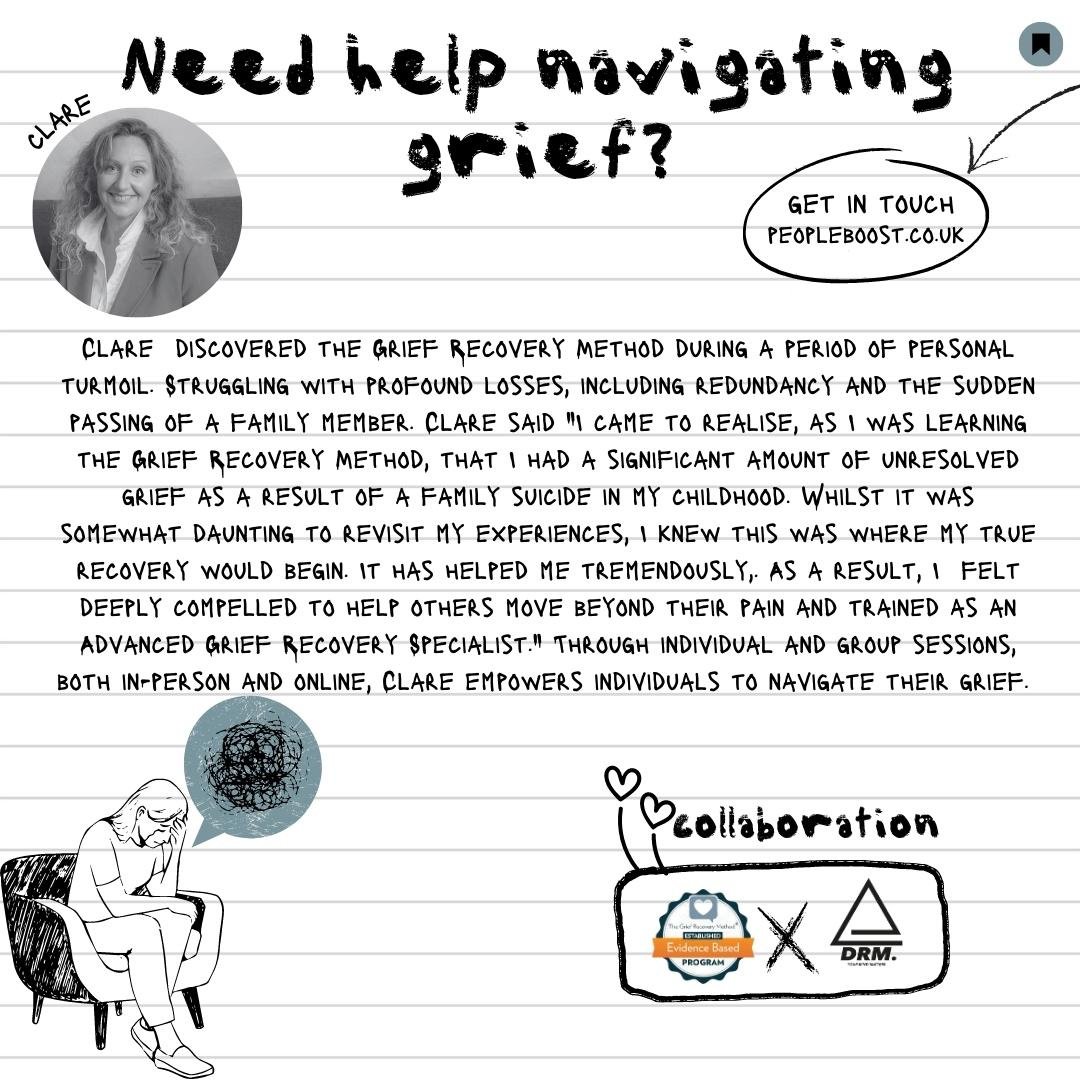 Need help navigating
grief?
CLARE
GET IN TOUCH
PEOPLEBOOST.CO.UK
CLARE DISCOVERED THE GRIEF RECOVERY METHOD DURING A PERIOD OF PERSONAL
TURMOIL. STRUGGLING WITH PROFOUND LOSSES, INCLUDING REDUNDANCY AND THE SUDDEN
PASSING OF A FAMILY MEMBER. CLARE SAID "I CAME TO REALISE, AS I WAS LEARNING
THE GRIEF RECOVERY METHOD, THAT I HAD A SIGNIFICANT AMOUNT OF UNRESOLVED
GRIEF AS A RESULT OF A FAMILY SUICIDE IN MY CHILDHOOD. WHILST IT WAS
SOMEWHAT DAUNTING TO REVISIT MY EXPERIENCES, I KNEW THIS WAS WHERE MY TRUE
RECOVERY WOULD BEGIN. IT HAS HELPED ME TREMENDOUSLY,. AS A RESULT, I FELT
DEEPLY COMPELLED TO HELP OTHERS MOVE BEYOND THEIR PAIN AND TRAINED AS AN
ADVANCED GRIEF RECOVERY SPECIALIST." THROUGH INDIVIDUAL AND GROUP SESSIONS,
BOTH IN-PERSON AND ONLINE, CLARE EMPOWERS INDIVIDUALS TO NAVIGATE THEIR GRIEF.
collaboration
The Grief Recovery Method®
ESTABLISHED
Evidence Based
PROGRAM
X
DRM.